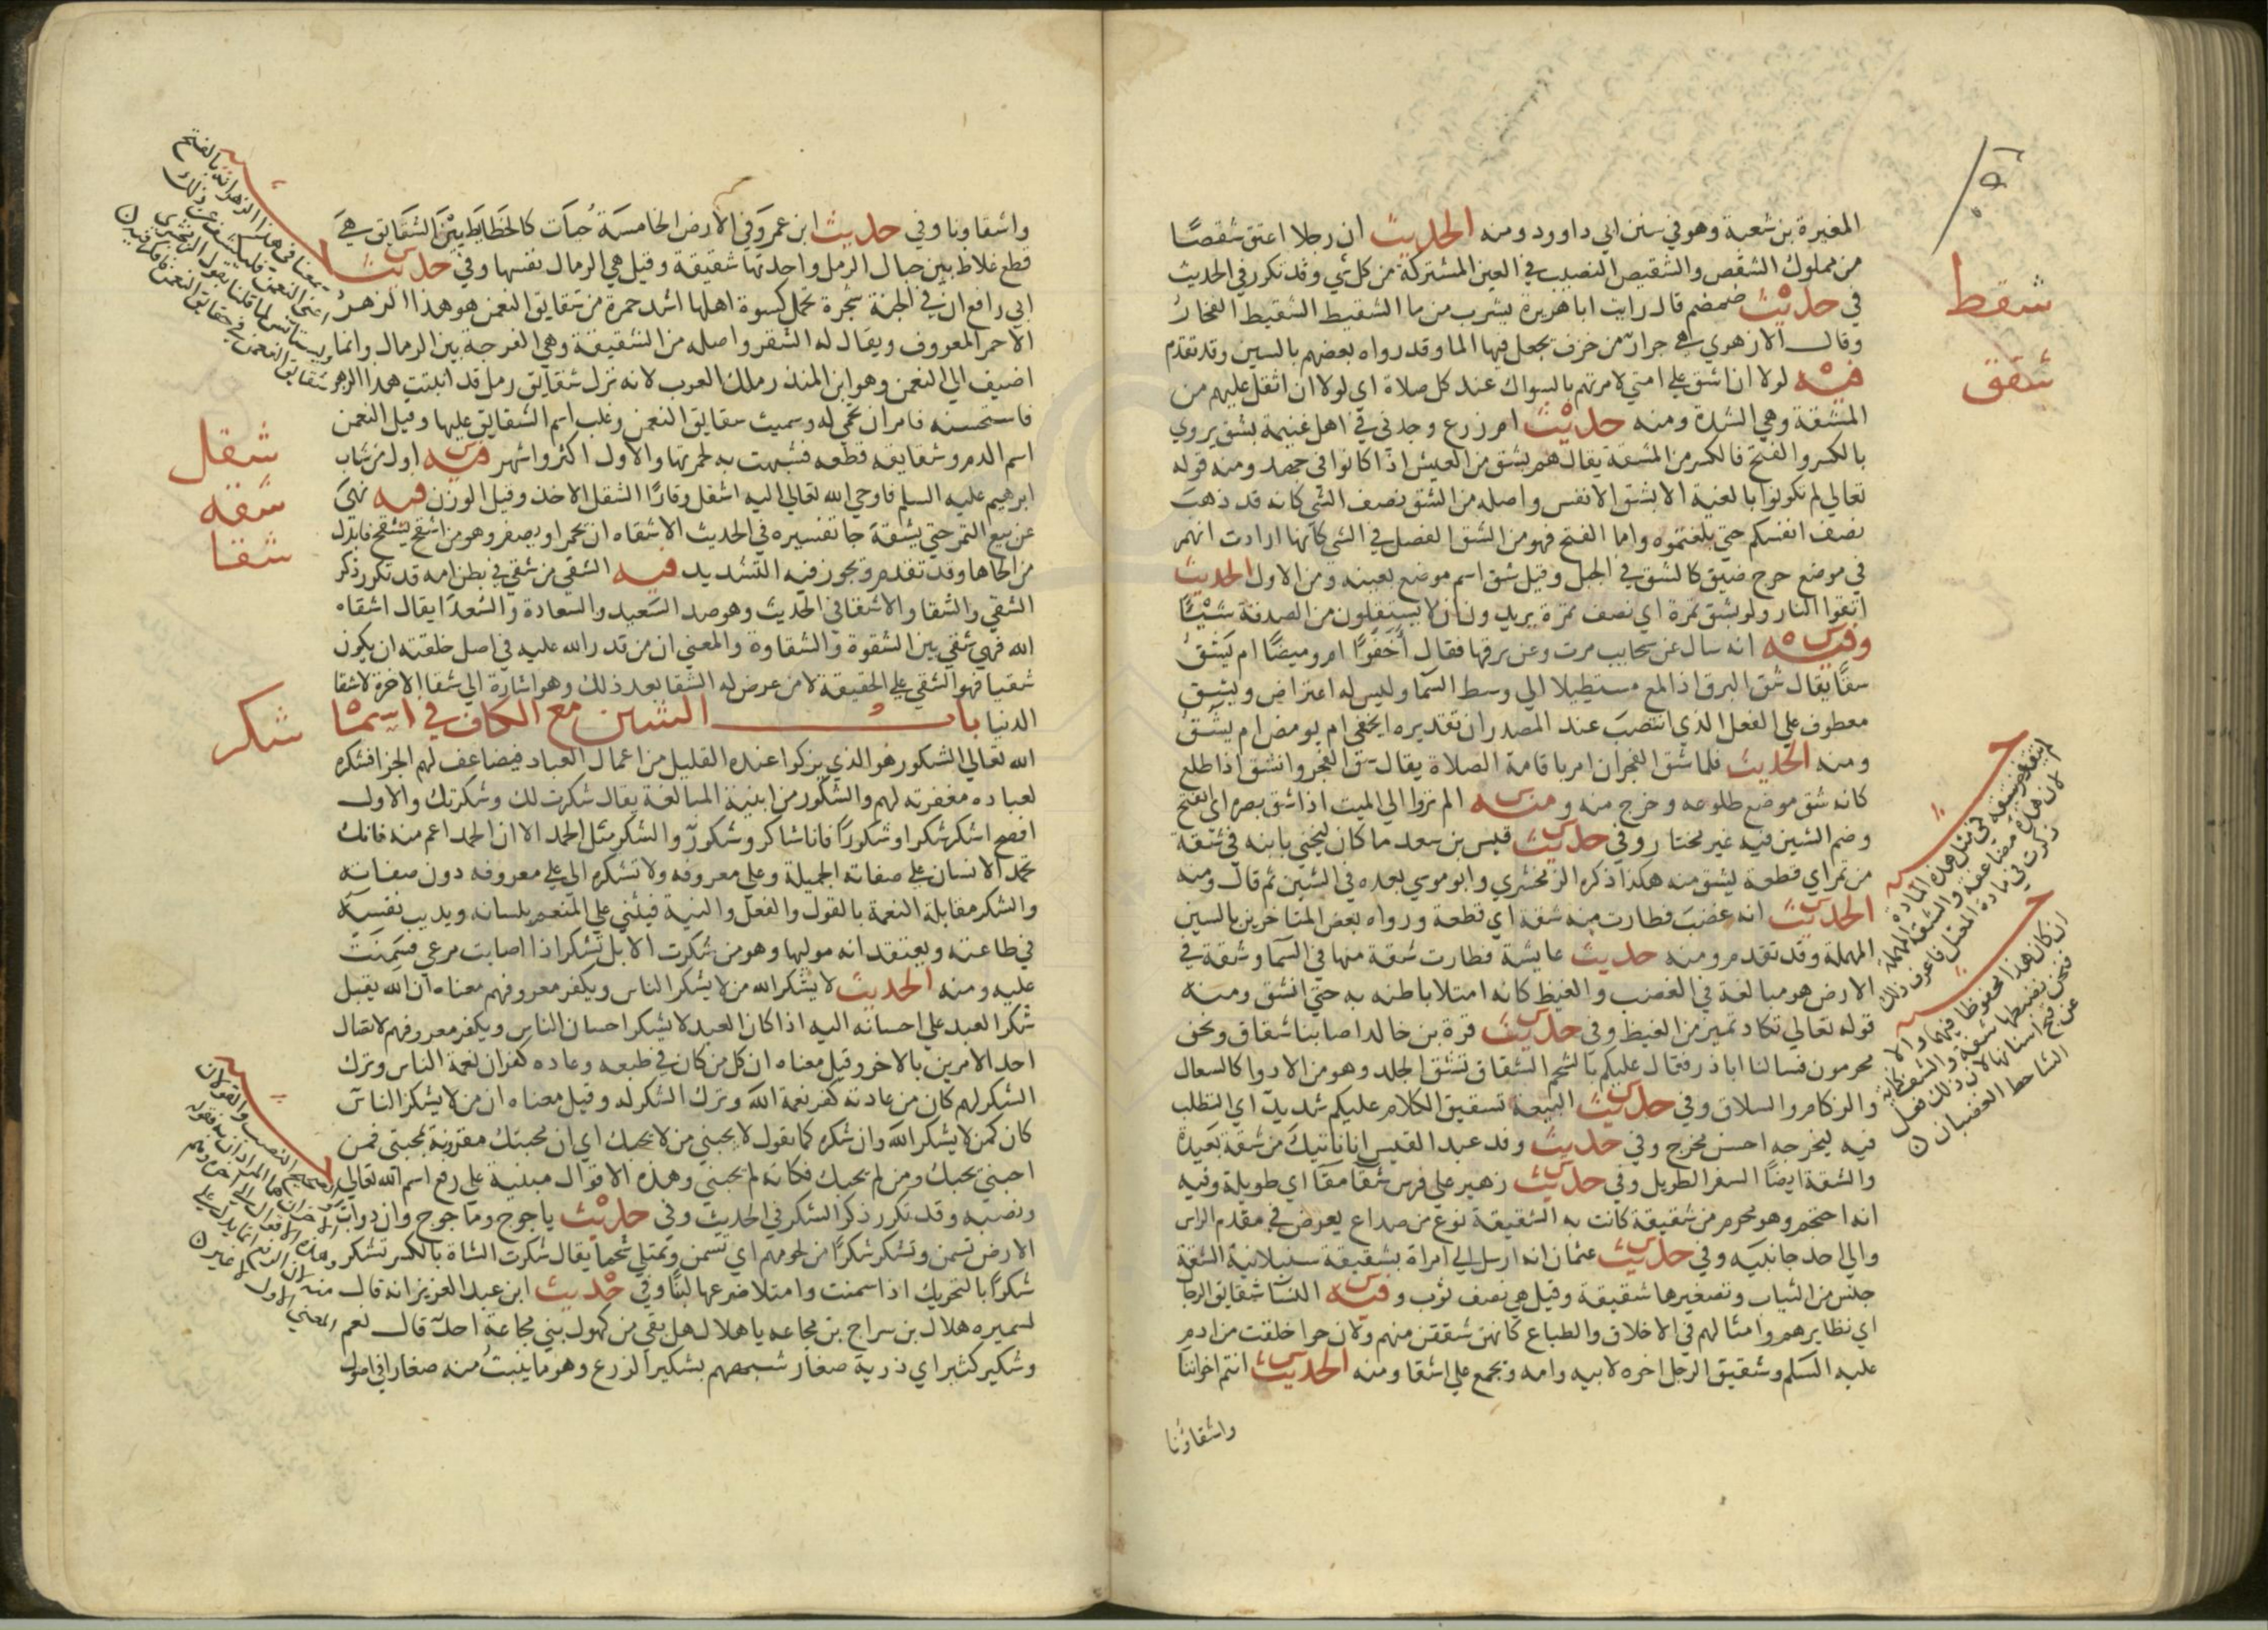 المغيرة بن شعبة وهو في سنن ابي داوود ومنه الحديث ان رجلا اعتق شقصًا
من مملوك الشقص والشقيص النصيب في العين المشتركة من كل شي وقد تكرر في الحديث
شقط
في حديث ضمضم قال رايت ابا هريرة يشرب من ما الشقيط الشقيط الفخار
وقال الازهري هي جرار من خزف يجعل فيها الما وقد رواه بعضهم بالسين وقد تقدم
شقق
فيه لولا ان اشق علي امتي لامرتهم بالسواك عند كل صلاة اي لولا ان اثقل عليهم من
المشقة وهي الشدة ومنه حديث ام زرع وجدني في اهل غنيمة بشق يروي
بالكسر والفتح فالكسر من المشقة يقال هم بشق من العيش اذا كانوا في جهد ومنه قوله
تعالي لم تكونوا بالغيه الا بشق الانفس واصله من الشق نصف الشي كانه قد ذهب
نصف انفسكم حتي بلغتموه واما الفتح فهو من الشق الفصل في الشي كانها ارادت انهم
في موضع حرج ضيق كالشق في الجبل وقيل شق اسم موضع بعينه ومن الاول الحديث
اتقوا النار ولو بشق تمرة اي نصف تمرة يريد ان لا يستقلون من الصدقة شيًا
وفيه انه سال عن سحايب مرت وعن برقها فقال أخفوًا ام وميضًا ام يشق
شقًا يقال شق البرق اذا لمع مستطيلا الي وسط السما وليس له اعتراض ويشق
معطوف علي الفعل الذي انتصب عند المصدر ان تقديره ايخفي ام يومض ام يشق
ومنه الحديث فلما شق الفجران امر باقامة الصلاة يقال شق الفجر وانشق اذا طلع
كانه شق موضع طلوعه وخرج منه ومنه الم تروا الي الميت اذا شق بصره اي انفتح
وضم الشين فيه غير مختار وفي حديث قيس بن سعد ما كان ليخني بابنه في شقة
من تمر اي قطعة يشق منه هكذا ذكره الزمخشري وابو موسي بعده في الشين ثم قال ومنه
الحديث انه غضب فطارت منه شقة اي قطعة ورواه بعض المتاخرين بالسين
المهملة وقد تقدم ومنه حديث عايشة فطارت شقة منها في السما وشقة في
الارض هو مبالغة في الغضب والغيظ كانه امتلا باطنه به حتي انشق ومنه
قوله تعالي تكاد تميز من الغيظ وفي حديث قرة بن خالد اصابنا شقاق ونحن
محرمون فسالنا اباذر فقال عليكم بالشحم الشقاق تشقق الجلد وهو من الادوا كالسعال
والزكام والسلاق وفي حديث البيعة تشقيق الكلام عليكم شديد اي التطلب
فيه ليخرجه احسن مخرج وفي حديث وفد عبد القيس انا ناتيك من شقة بعيدة
والشقة ايضًا السفر الطويل وفي حديث زهير علي فرس شقا مقا اي طويلة وفيه
انه احتجم وهو محرم من شقيقة كانت به الشقيقة نوع من صداع يعرض في مقدم الراس
والي احد جانبيه وفي حديث عثمان انه ارسل الي امراة بشقيقة سنبلانية الشقة
جنس من الثياب وتصغيرها شقيقة وقيل هي نصف ثوب وفيه النسا شقايق الرجا
اي نظايرهم وامثالهم في الاخلاق والطباع كانهن شققن منهم ولان حوا خلقت من ادم
عليه السلم وشقيق الرجل اخره لابيه وامه ويجمع علي اشقا ومنه الحديث انتم اخواننا
واشقاؤنا
لان هذه مضاعفة والشقة المهملة
ذكرت في مادة المعتل فاعرف ذلك
ان كان هذا محفوظا فيهما والا
فنحن نضبطها شقة
الشاحط الغضبان
واشقاونا وفي حديث ابن عمرو في الارض الخامسة حيات كالخطايط بين الشقايق هي
قطع غلاظ بين حبال الرمل واحدتها شقيقة وقيل هي الرمال نفسها وفي حديث
ابي رافع ان في الجنة شجرة تحمل كسوة اهلها اشد حمرة من شقايق النعمن هو هذا الزهر
الاحمر المعروف ويقال له الشقر واصله من الشقيقة وهي الفرجة بين الرمال وانما
اضيف الي النعمن وهو ابن المنذر ملك العرب لانه نزل شقايق رمل قد انبتت هذا الزهر
فاستحسنه فامر ان تحمي له وسميت شقايق النعمن وغلب اسم الشقايق عليها وقيل النعمن
شقل
اسم الدم وشقايقه قطعه فشبهت به لحمرتها والاول اكثر واشهر فيه اول من شاب
شقه
ابرهيم عليه السلم فاوحي الله تعالي اليه اشقل وقارًا الشقل الاخذ وقيل الوزن فيه نهي
عن بيع التمر حتي يشقه جا تفسيره في الحديث الاشقاه ان تحمر او يصفر وهو من اشقح يشقح فابدل
شقا
من الحاها وقد تقدم ويجوز فيه التشديد فيه الشقي من شقي في بطن امه قد تكرر ذكر
الشقي والشقا والاشقيا في الحديث وهو ضد السعيد والسعادة والسعدا يقال اشقاه
الله فهو شقي بين الشقوة والشقاوة والمعني ان من قدر الله عليه في اصل خلقته ان يكون
شقيا فهو الشقي علي الحقيقة لا من عرض له الشقا بعد ذلك وهو اشارة الي شقا الاخرة لا شقا
شكر
الدنيا باب الشين مع الكاف في اسما
الله تعالي الشكور هو الذي يزكوا عنده القليل من اعمال العباد فيضاعف لهم الجزا فشكره
لعباده مغفرته لهم والشكور من ابنية المبالغة يقال شكرت لك وشكرتك والاول
افصح اشكر شكرا وشكورًا فانا شاكر وشكور والشكر مثل الحمد الا ان الحمد اعم منه فانك
تحمد الانسان علي صفاته الجميلة وعلي معروفه ولا تشكره الي علي معروفه دون صفاته
والشكر مقابلة النعمة بالقول والفعل والنية فيثني علي المنعم بلسانه ويديب نفسه
في طاعته ويعتقد انه موليها وهو من شكرت الابل تشكر اذا اصابت مرعي فسمنت
عليه ومنه الحديث لا يشكر الله من لا يشكر الناس ويكفر معروفهم معناه ان الله يقبل
شكر العبد علي احسانه اليه اذا كان العبد لا يشكر احسان الناس ويكفر معروفهم لاتصال
احد الامرين بالاخر وقيل معناه ان كل من كان في طبعه وعاده كفران نعمة الناس وترك
الشكر لهم كان من عادته كفر نعمة الله وترك الشكر له وقيل معناه ان من لا يشكر الناس
كان كمن لا يشكر الله وان شكره كما يقول لا يحبني من لا يحبك اي ان محبتك مقرونة بمحبتي فمن
احبني يحبك ومن لم يحبك فكانه لم يحبني وهذه الاقوال مبنية علي رفع اسم الله تعالي
ونصبه وقد تكرر ذكر الشكر في الحديث وفي حديث ياجوج وماجوج وان دواب
الارض تسمن وتشكر شكرًا من لحومهم اي تسمن وتمتلي شحما يقال شكرت الشاة بالكسر تشكر
شكرًا بالتحريك اذا سمنت وامتلا ضرعها لبنًا وفي حديث ابن عبد العزيز انه قال
لسميره هلال بن سراج بن مجاعه يا هلال هل بقي من كهول بني مجاعة احد قال نعم
وشكير كثير اي ذرية صغار شبههم بشكير الزرع وهو ما ينبت منه صغارا في اصول